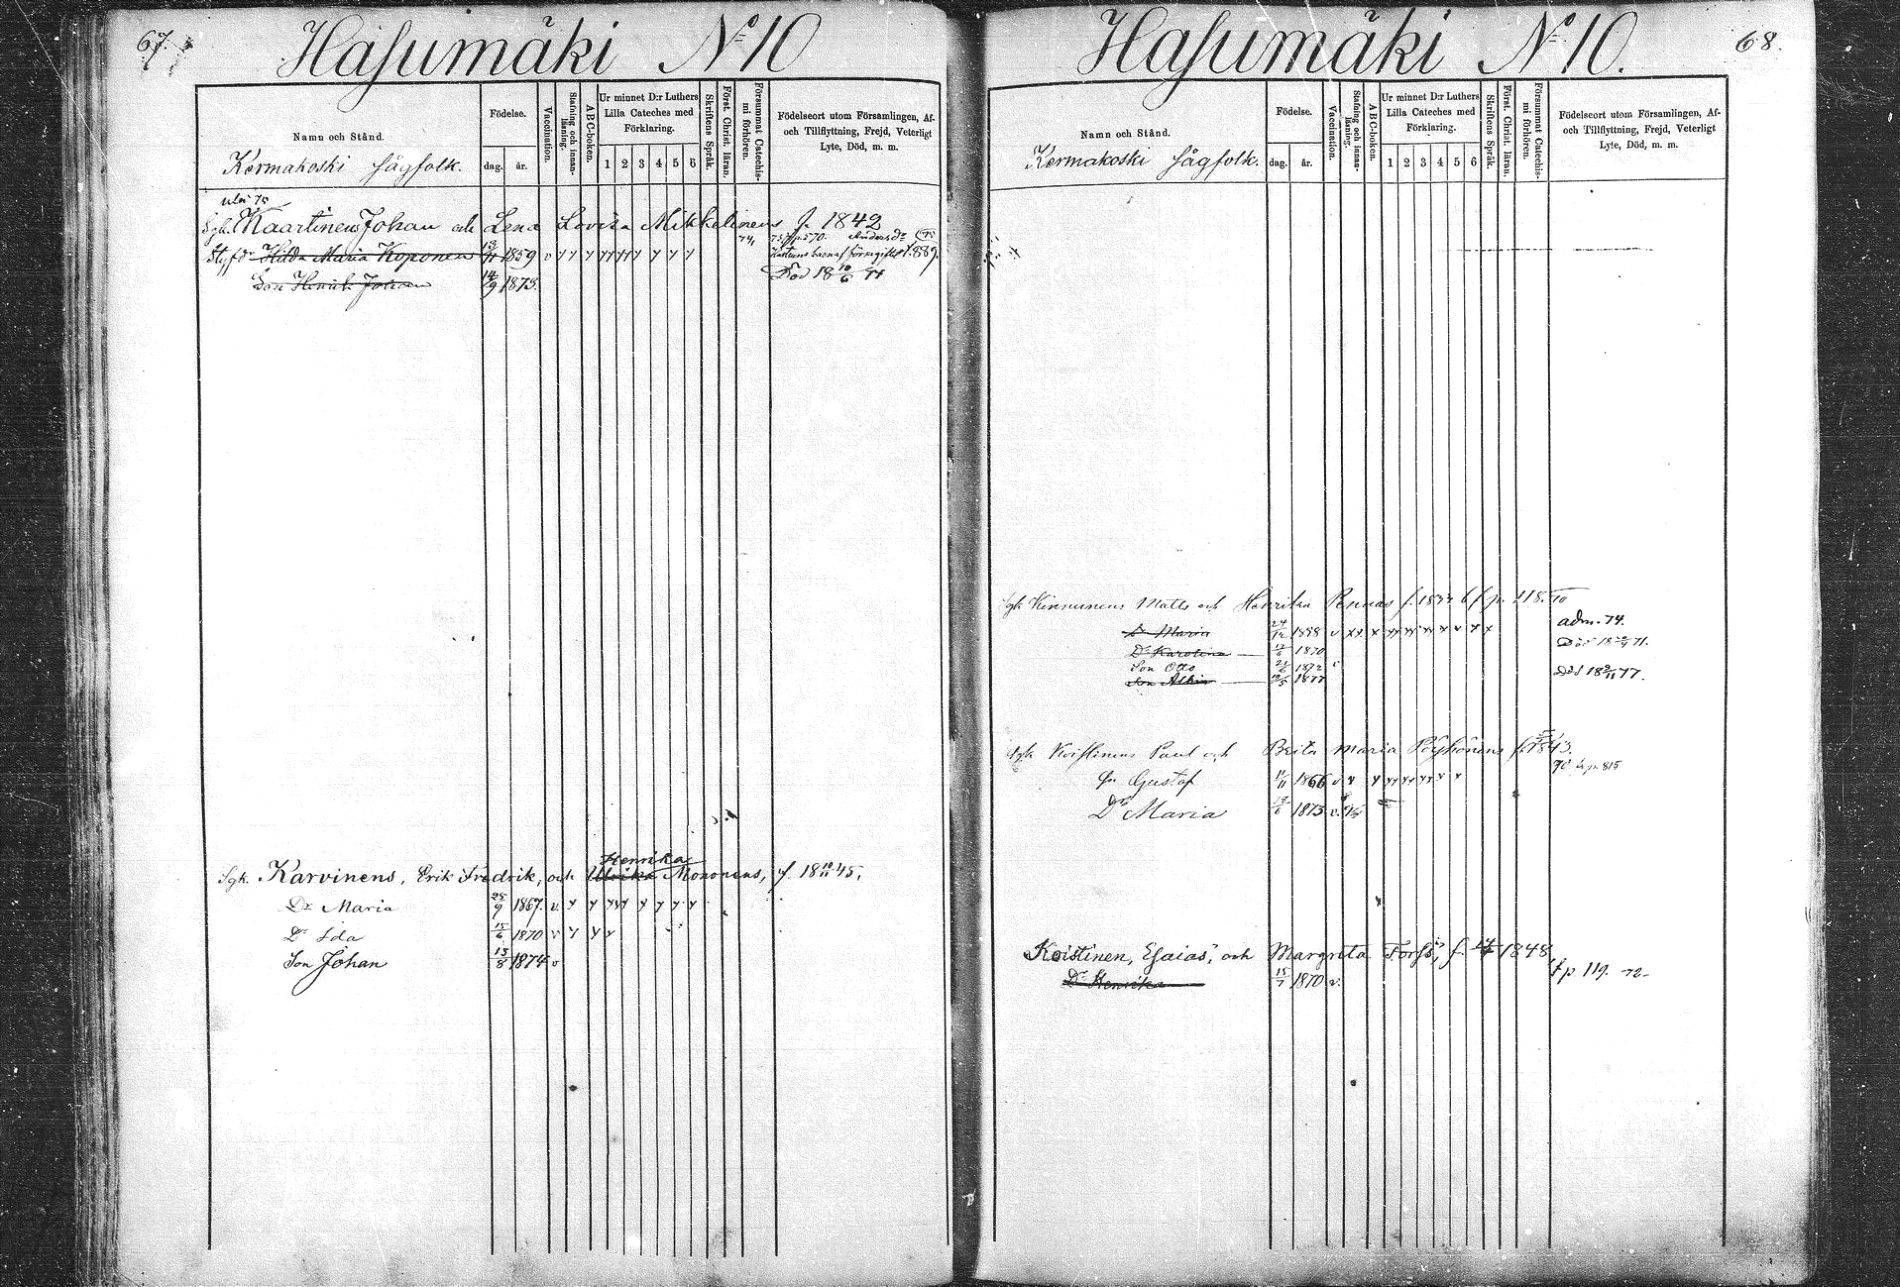 67.
Hasumäki No 10
Namn och Stånd.
Kermakoski sågfolk.
Födelse.
dag. år.
Vaccination.
Stafning och innan-läsning.
A B C-boken.
Ur minnet D:r Luthers
Lilla Cateches med
Förklaring.
1 2 3 4 5 6
Skriftens Språk.
Först. Christ. läran.
Försummat Catechis-
mi förhören.
Födelseort utom Församlingen, Af-
och Tillflyttning, Frejd, Veterligt
Lyte, Död, m. m.
Sgk. Kaartinens Johan och Lena Lovisa Mikkelinens f. 1842
Hilda Maria Koponen 1859 v
Son Henrik Johan 14/9 1873. Död 18 10/6 74
Henrika
Sgk. Karvinens, Erik Fredrik, och Ulrika Mononens, f. 18 45.
Dr Maria 25/9 1867. v.
Dr Ida 15/6 1870 v
Son Johan 13/8 1874 v
68.
Hasumäki No 10.
Namn och Stånd.
Kermakoski sågfolk.
Födelse.
dag. år.
Vaccination.
Stafning och innan-läsning.
A B C-boken.
Ur minnet D:r Luthers
Lilla Cateches med
Förklaring.
1 2 3 4 5 6
Skriftens Språk.
Först. Christ. läran.
Försummat Catechis-
mi förhören.
Födelseort utom Församlingen, Af-
och Tillflyttning, Frejd, Veterligt
Lyte, Död, m. m.
Sgk Kinnunens Matts och Henrika f. p. 118.
adm. 74.
Dr Maria 24/12 v
Dr Karolina 1870 Död 71.
Son Otto 1872 v
Son Albin 1877 Död 18 77.
Sgk Koistinens Paul och Brita Maria Pöyhönens f. 1843.
Gustaf 11/11 1866 v
Dr Maria 1873 v.
Koistinen, Esaias, och Margreta Forss, f. 1848
Dr Henrika 15/7 1870 v. f p 119. 72